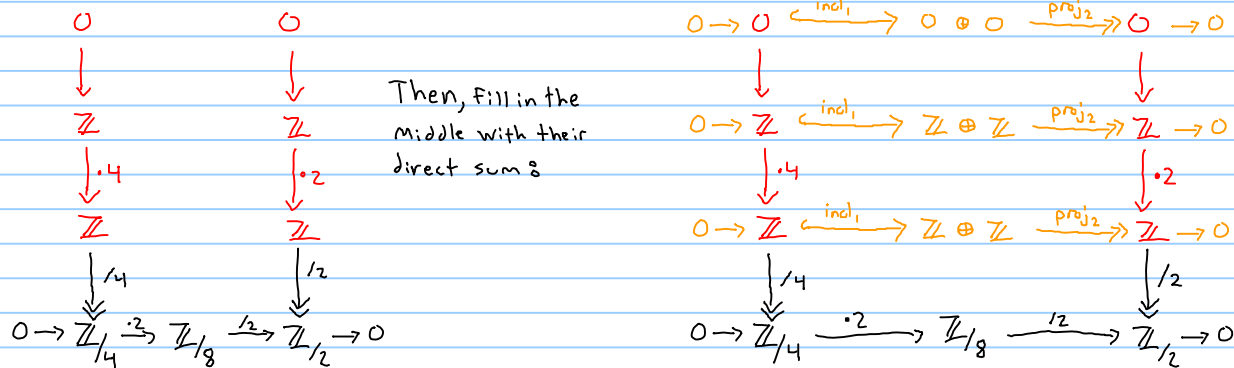 0 0
ℤ ℤ
·4 ·2
ℤ ℤ
/4 /2
0 → ℤ/4 ·2→ ℤ/8 /2→ ℤ/2 → 0
Then, fill in the
middle with their
direct sum:
0 → 0 incl₁ 0 ⊕ 0 proj₂ 0 → 0
0 → ℤ incl₁ ℤ ⊕ ℤ proj₂ ℤ → 0
·4 ·2
0 → ℤ incl₁ ℤ ⊕ ℤ proj₂ ℤ → 0
/4 /2
0 → ℤ/4 ·2→ ℤ/8 /2→ ℤ/2 → 0